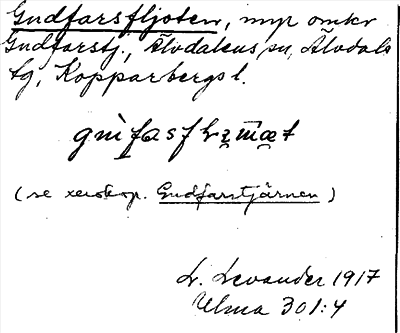 Gudfarsfljoten, myr omkr
Gudfarstj., Älvdalens sn, Älvdals
tg, Kopparbergs l.
(se xerokop. Gudfarstjärnen)
L. Levander 1917
Ulma 301:4